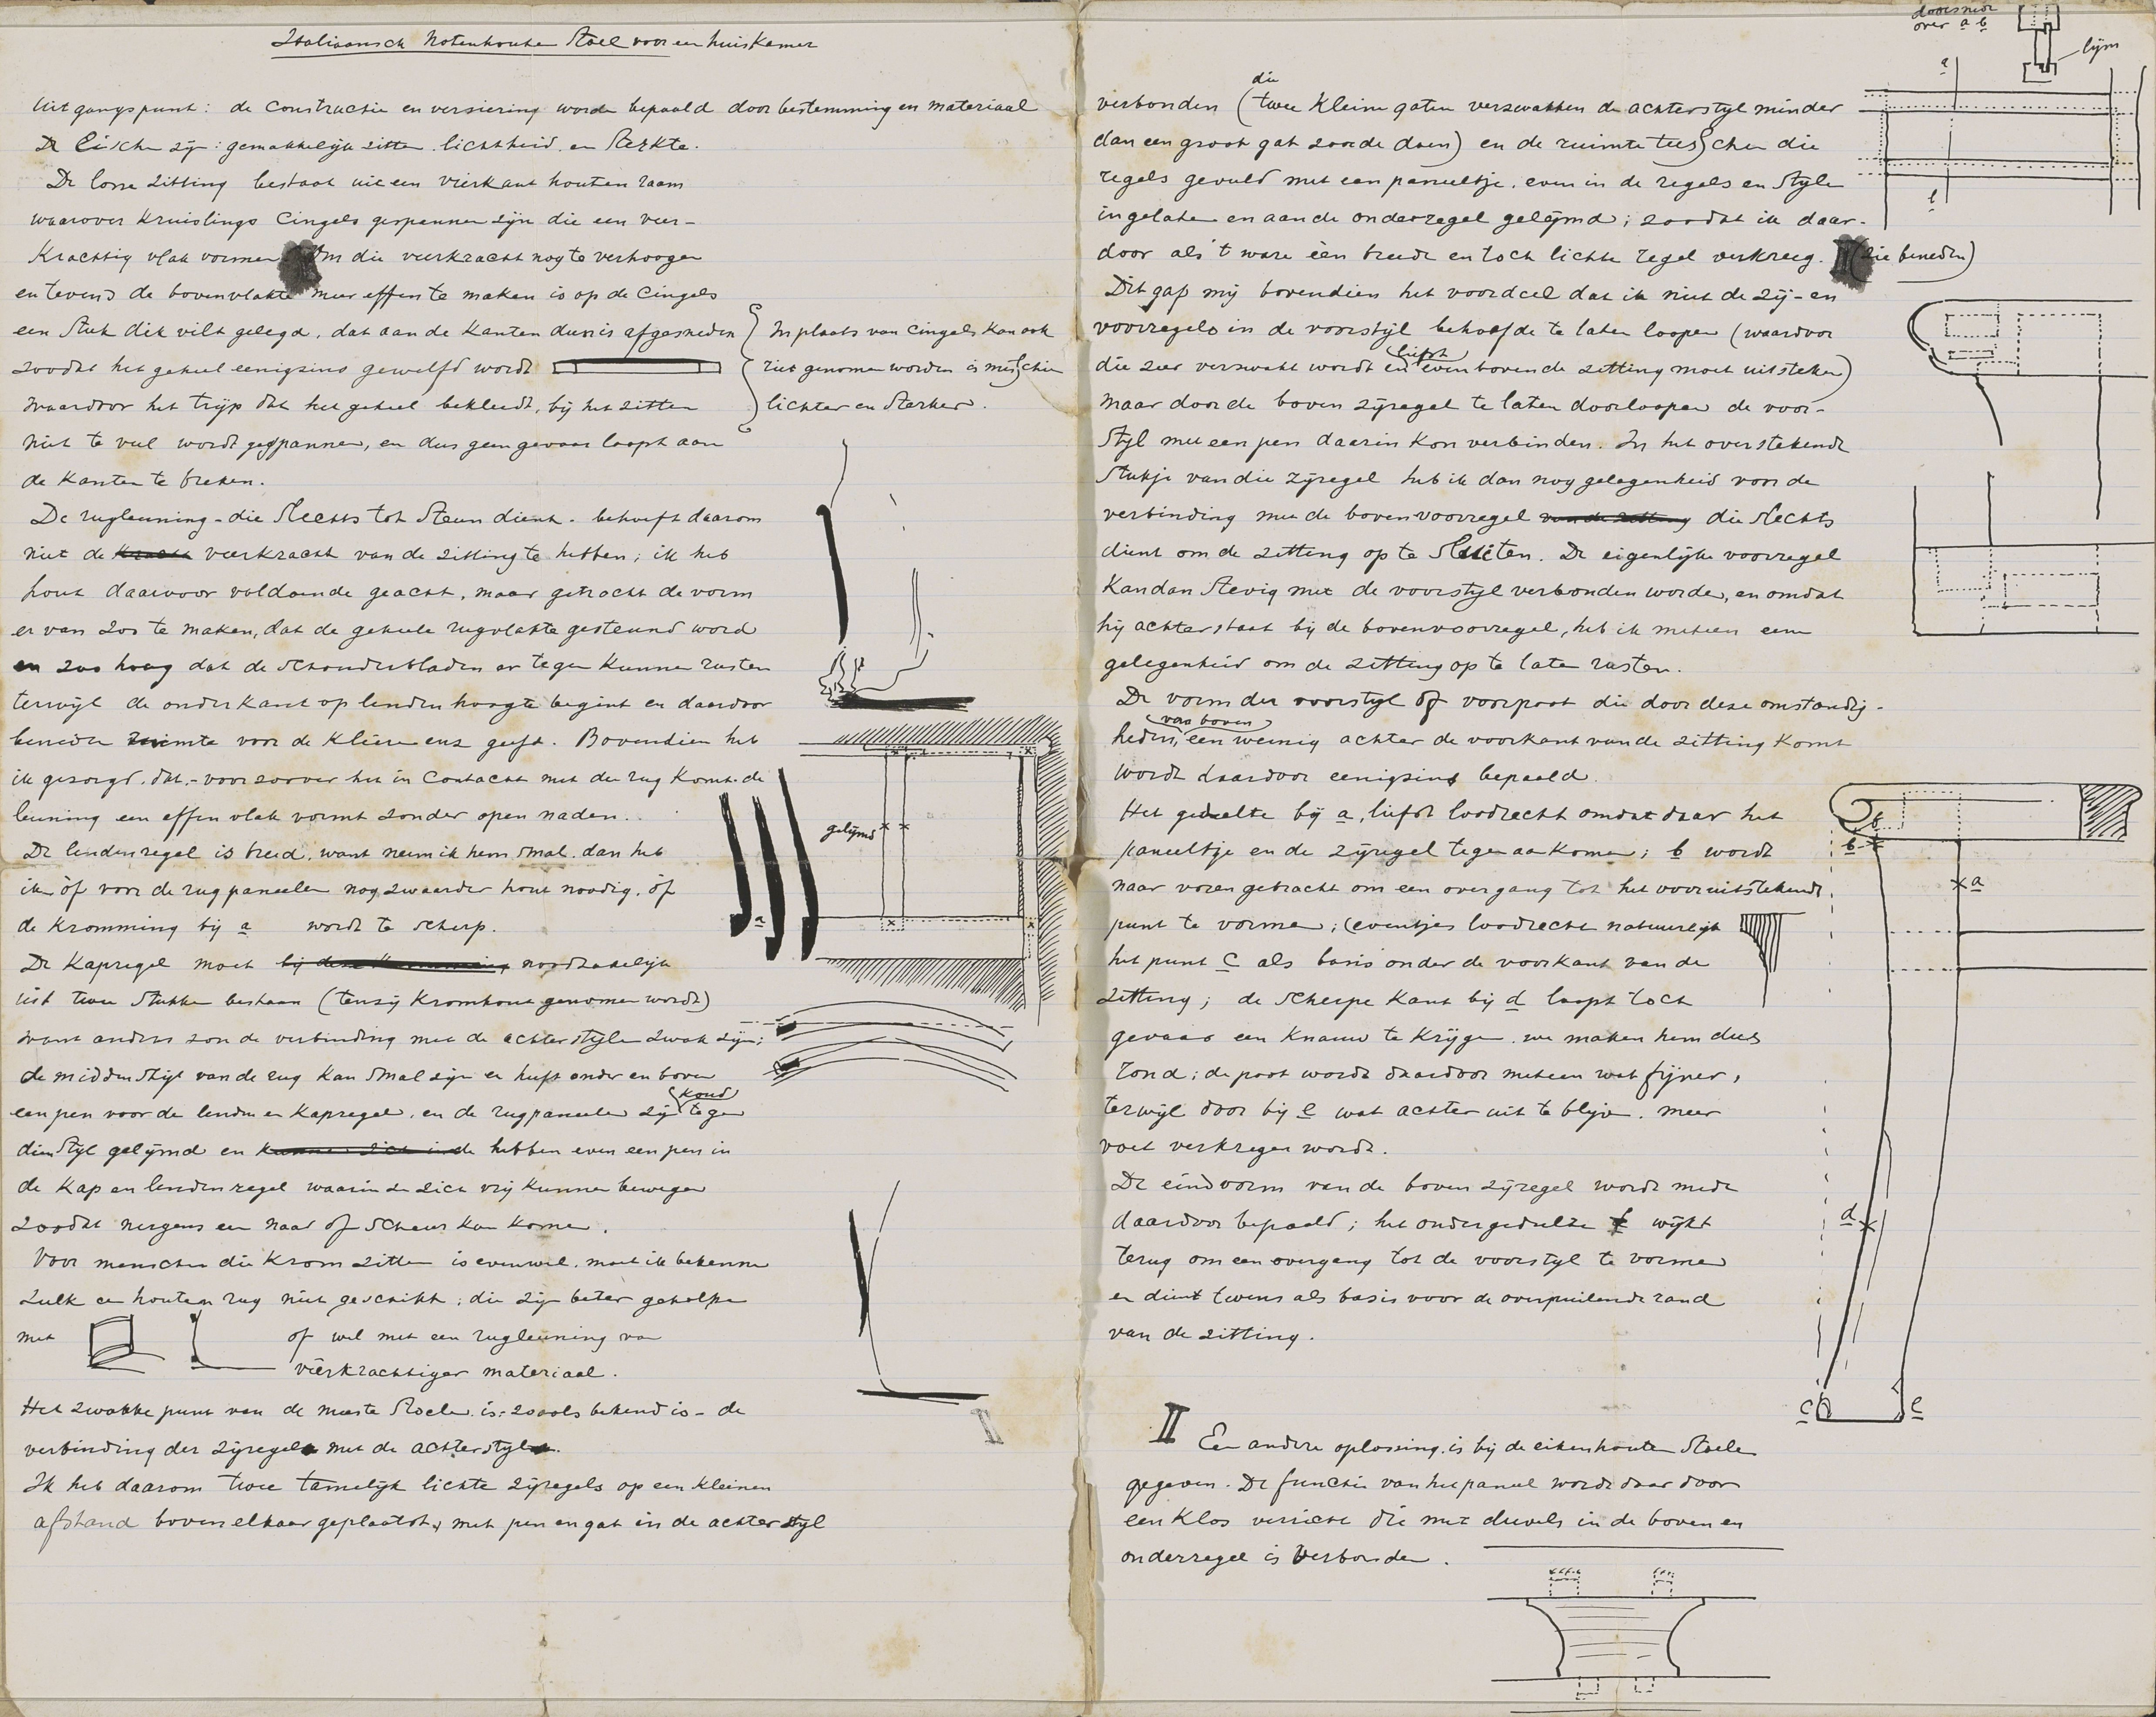 Italiaansch Notenhouten Stoel voor een huiskamer
Uitgangspunt: de constructie en versiering worden bepaald door bestemming en materiaal
De Eischen zijn: gemakkelijk zitten, lichtheid en sterkte.
De losse zitting bestaat uit een vierkant houten raam
waarover kruislings cingels gespannen zijn die een veer-
krachtig vlak vormen. Om die veerkracht nog te verhoogen
en tevens de bovenvlakte meer effen te maken is op de cingels
een stuk dik vilt gelegd, dat aan de kanten dun is afgesneden
zoodat het geheel eenigzins gewelfd wordt
waardoor het trijp dat het geheel bekleedt, bij het zitten
niet te veel wordt gespannen, en dus geen gevaar loopt aan
de kanten te breken.
In plaats van cingels kan ook
riet genomen worden is misschien
lichter en sterker.
De rugleuning - die slechts tot steun dient - behoeft daarom
niet de kracht veerkracht van de zitting te hebben; ik heb
hout daarvoor voldoende geacht, maar getracht de vorm
er van zoo te maken, dat de geheele rugvlakte gesteund word
en zoo hoog dat de schouderbladen er tegen kunnen rusten
terwijl de onderkant op lendenhoogte begint en daardoor
beneden ruimte voor de kleeren enz geeft. Bovendien heb
ik gezorgd, dat, - voor zoover het in contact met de rug komt - de
leuning een effen vlak vormt zonder open naden.
De lendenregel is breed, want neem ik hem smal, dan heb
ik òf voor de rugpaneelen nog zwaarder hout noodig, òf
de kromming bij a wordt te scherp.
gelijmd
a
De Kapregel moet noodzakelijk
uit twee stukken bestaan (tenzij kromhout genomen wordt)
want anders zou de verbinding met de achterstijlen zwak zijn;
de middenstijl van de rug kan smal zijn en heeft onder en boven
een pen voor de lenden en kapregel, en de rugpaneelen zijn koud tegen
dien stijl gelijmd en kunnen zich in de hebben even een pen in
de kap en lendenregel waarin ze zich vrij kunnen bewegen
zoodat nergens een naad of scheur kan komen.
Voor menschen die krom zitten is evenwel, moet ik bekennen
zulk een houten rug niet geschikt; die zijn beter geholpen
met of wel met een rugleuning van
veerkrachtiger materiaal.
Het zwakke punt van de meeste stoelen is - zooals bekend is - de
verbinding der zijregels met de achterstijlen.
II
Ik heb daarom twee tamelijk lichte zijregels op een kleinen
afstand boven elkaar geplaatst, met pen en gat in de achterstijl
doorsnede
over a b
lijm
a
b
verbonden (die twee kleine gaten verzwakken de achterstijl minder
dan een groot gat zoude doen) en de ruimte tusschen die
regels gevuld met een paneeltje, even in de regels en stijlen
ingelaten en aan de onderregel gelijmd; zoodat ik daar-
door als 't ware één breede en toch lichte regel verkreeg. II (zie beneden)
Dit gaf mij bovendien het voordeel dat ik niet de zij- en
voorregels in de voorstijl behoefde te laten loopen (waardoor
die zeer verzwakt wordt en liefst even boven de zitting moet uitsteken)
maar door de boven zijregel te laten doorloopen de voor-
stijl met een pen daarin kon verbinden. In het overstekende
stukje van die zijregel heb ik dan nog gelegenheid voor de
verbinding met de bovenvoorregel van de zitting die slechts
dient om de zitting op te sluiten. De eigenlijke voorregel
kan dan stevig met de voorstijl verbonden worden, en omdat
hij achter staat bij de bovenvoorregel, heb ik meteen een
gelegenheid om de zitting op te laten rusten.
De vorm der voorstijl of voorpoot die door deze omstandig-
heden, van boven een weinig achter de voorkant van de zitting komt
wordt daardoor eenigzins bepaald.
Het gedeelte bij a, liefst loodrecht omdat daar het
paneeltje en de zijregel tegen aan komen; b wordt
naar voren gebracht om een overgang tot het vooruitstekende
punt te vormen; (eventjes loodrecht natuurlijk
het punt c als basis onder de voorkant van de
zitting; de scherpe kant bij d loopt toch
gevaar een knauw te krijgen, we maken hem dus
rond; de poot wordt daardoor meteen wat fijner,
terwijl door bij e wat achter uit te blijven, meer
voet verkregen wordt.
De eindvorm van de boven zijregel wordt mede
daardoor bepaald; het ondergedeelte f wijkt
terug om een overgang tot de voorstijl te vormen
en dient tevens als basis voor de overpuilende rand
van de zitting.
f
b
a
d
c
e
II Een andere oplossing is bij de eikenhouten stoelen
gegeven. De functie van het paneel wordt daar door
een klos verricht die met deuvels in de boven en
onderregel is verbonden.